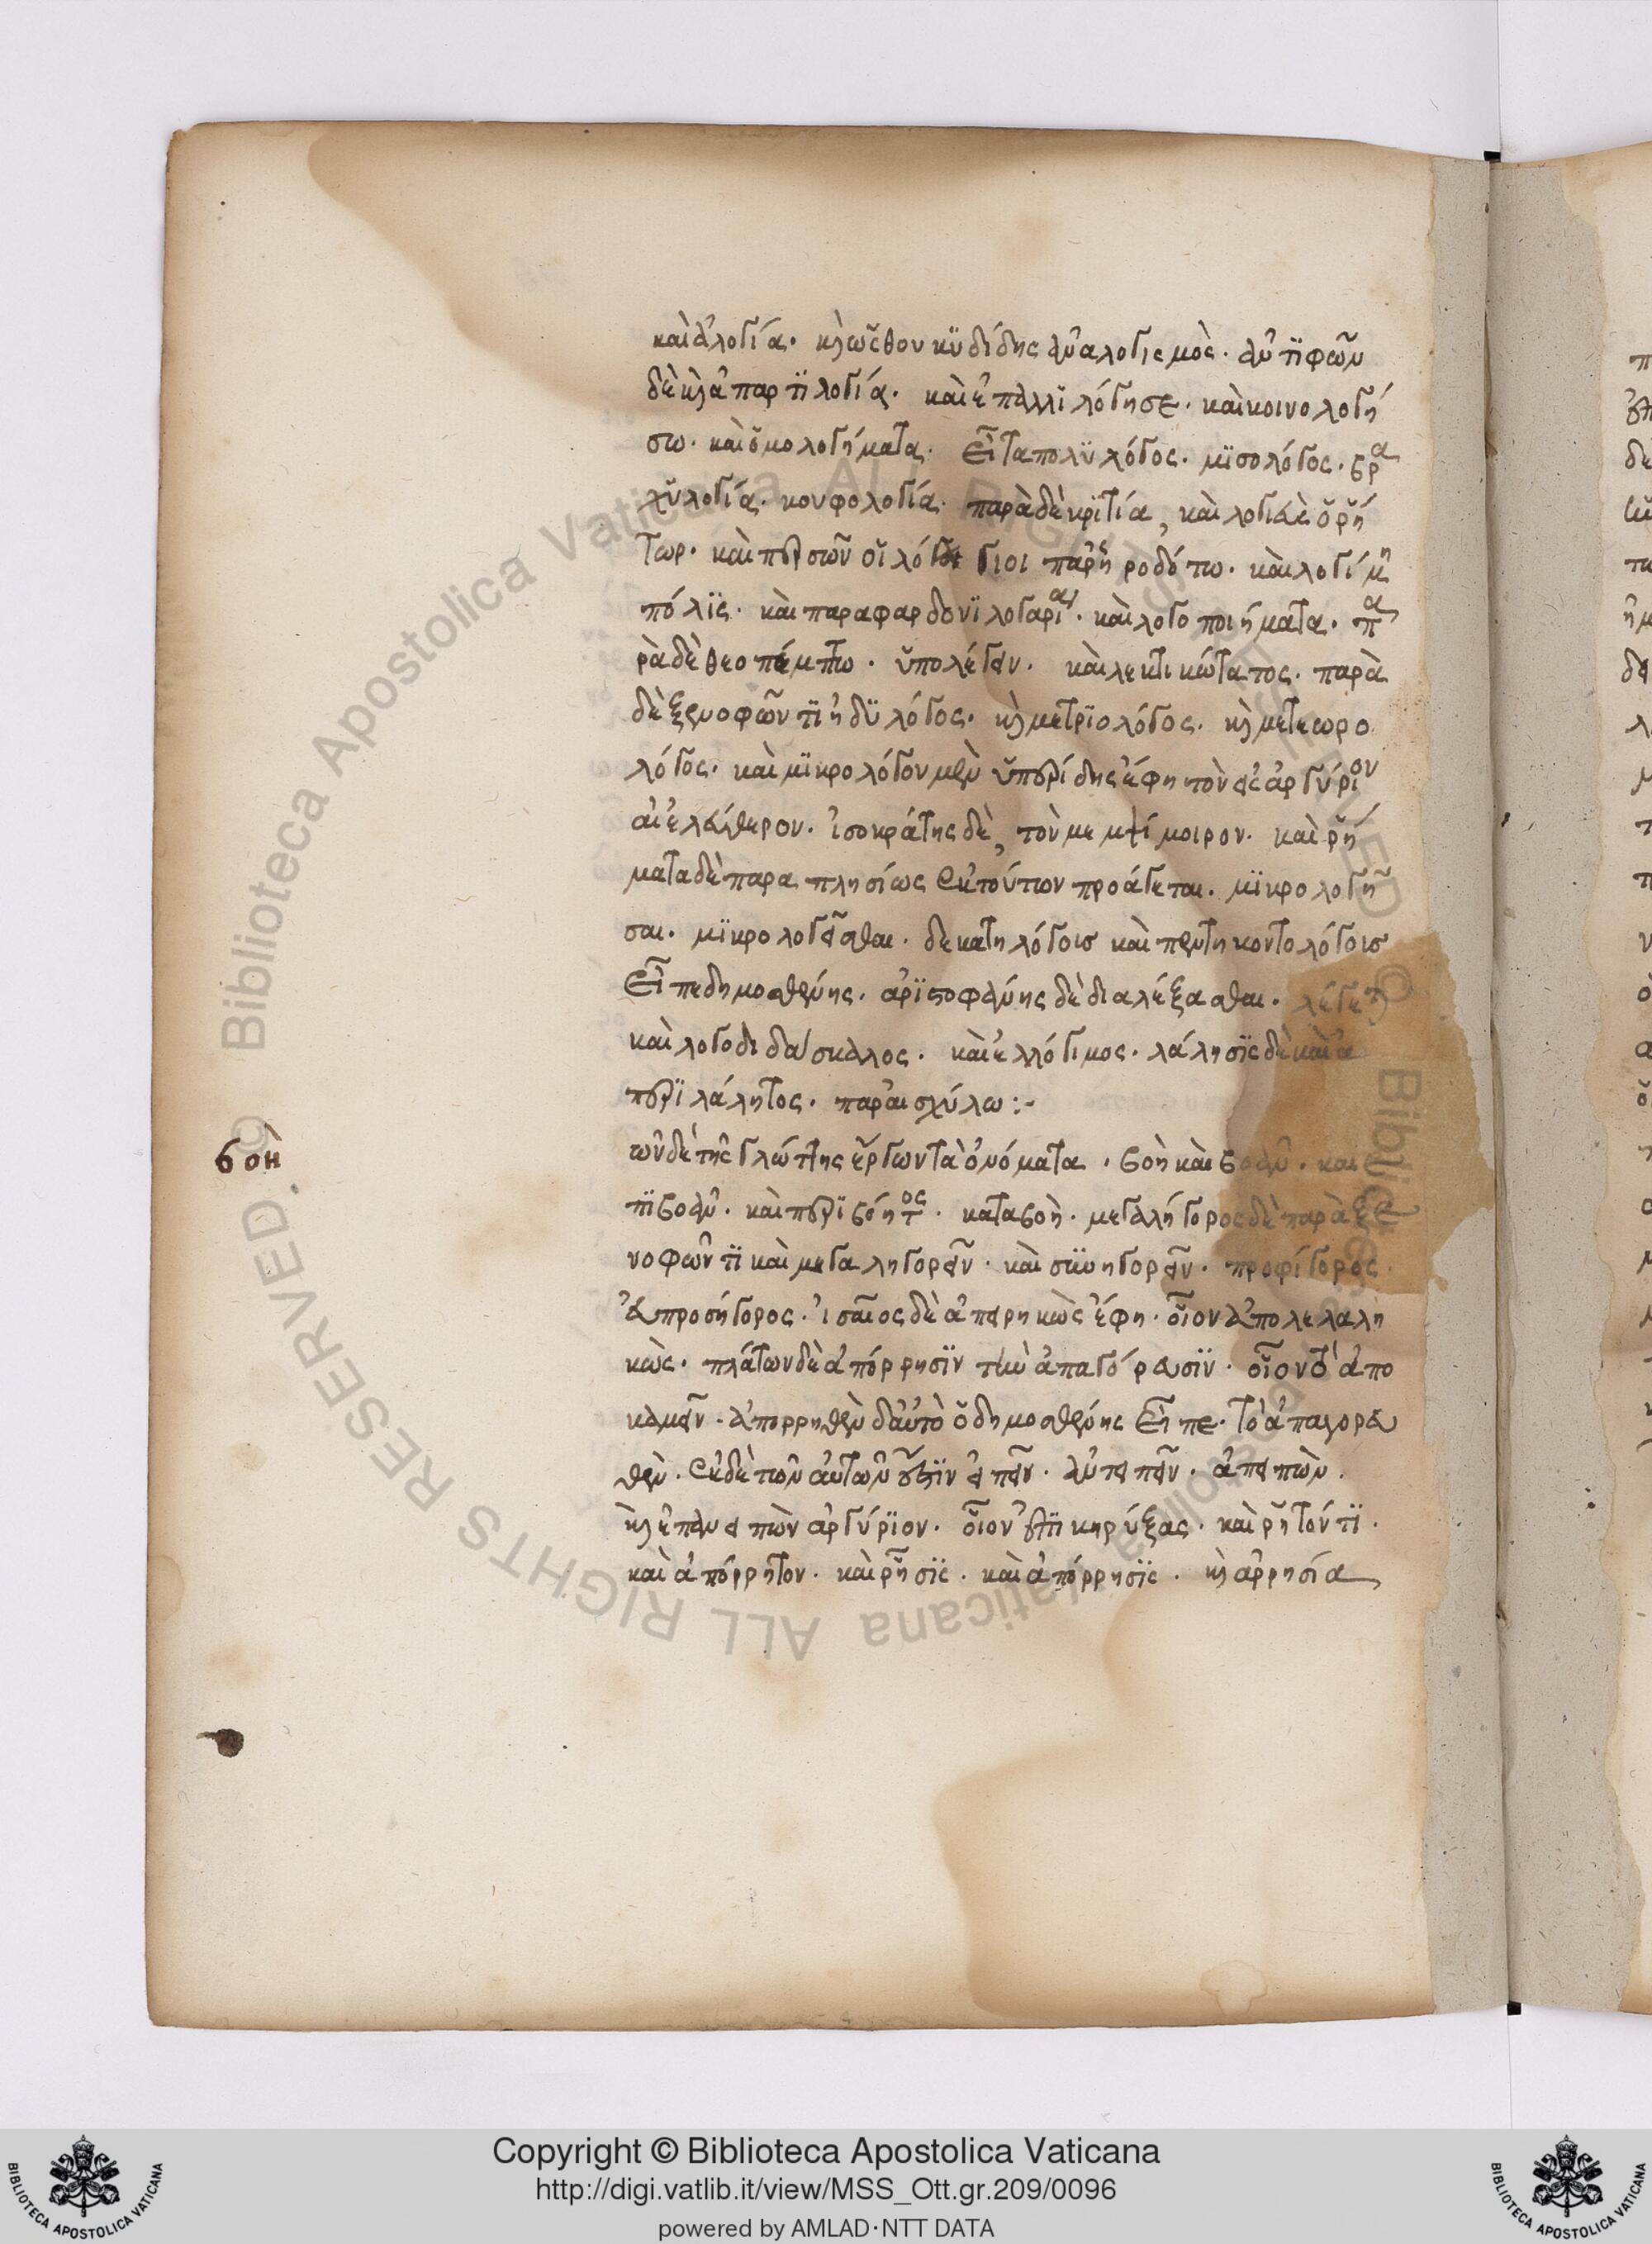 καὶ ἀλογία· κὴ ὡς θουκϋδίδης ἀναλογισμὸς· ἀντϊφῶν
δὲ κὴ ἀπαρτϊλογία· καὶ ἐπαλλϊλόγησε· καὶ κοινολογή
σω· καὶ ὁμολογήματα· εἶτα πολϋλόγος· μϊσολόγος· βρα
χϋλογία· κουφολογία· παρὰ δὲ κρϊτία, καὶ λογιὰὲ ὁ ῥή
τωρ· καὶ περσῶν οἱ λόγιοι παρ' ἡροδότω· καὶ λογίμη
πόλϊς· καὶ παρα φαρδονϊ λογαρια· καὶ λογοποιήματα· πα
ρὰ δὲ θεοπέμπτω· ὑπολέγειν· καὶ λεκτικώτατος· παρὰ
δὲ ξενοφῶντϊ ἡδϋλόγος· κὴ μετρϊολόγος· κὴ μετεωρο
λόγος· καὶ μϊκρολόγον μὲν ὑπερίδης ἔφη τὸν εἰς ἀργύριον
ἀιελεύθερον· ἰσοκράτης δὲ, τὸν μεμψίμοιρον· καὶ ῥή
ματα δὲ παραπλησίως ἐκ τούτων προάγεται· μϊκρολογῆ
σαι· μϊκρολογεῖσθαι· δεκατηλόγοισ καὶ πεντηκοντολόγοισ
εἶπε δημοσθένης· ἀρϊστοφάνης δὲ διαλέξασθαι· λέγετ
καὶ λογοδιδάσκαλος· καὶ ἐλλόγιμος· λάλησϊς δὲ καὶ ἀ
περϊλάλητος· παρ' αισχύλω:-
βοὴ
τῶν δὲ τῆς γλώττης ἔργων τὰ ὀνόματα· βοὴ καὶ βοᾶν· καὶ ἐ
πϊβοᾶν· καὶ περϊβόητος· καταβοὴ· μεγαλήγορος δὲ παρὰ ξε
νοφῶντϊ καὶ μεγαληγορεῖν· καὶ σϋνηγορεῖν· προφίγορος·
ἀπροσήγορος· ἰσαῖος δὲ ἀπειρηκὼς ἔφη· οἷον ἀπολελαλη
κὼς· πλάτων δὲ ἀπόρρησϊν τὴν ἀπαγόρευσϊν· οἷον τὸ ἀπο
καμεῖν· ἀπορρηθὲν δ' ἀυτὸ ὁ δημοσθένης εἶπε· τὸ ἀπαγορευ
θὲν· ἐκ δὲ τοῦ αὐτῶν ἐστϊν εἰπεῖν· ἀντειπεῖν· ἀπειπὼν·
κὴ ἐπανειπὼν ἀργύρϊον· οἷον ἐπϊκηρύξας· καὶ ῥητόν τϊ·
καὶ ἀπόρρητον· καὶ ῥῆσϊς· καὶ ἀπόρρησϊς· κὴ ἀρρησία
Copyright © Biblioteca Apostolica Vaticana
http://digi.vatlib.it/view/MSS_Ott.gr.209/0096
powered by AMLAD·NTT DATA